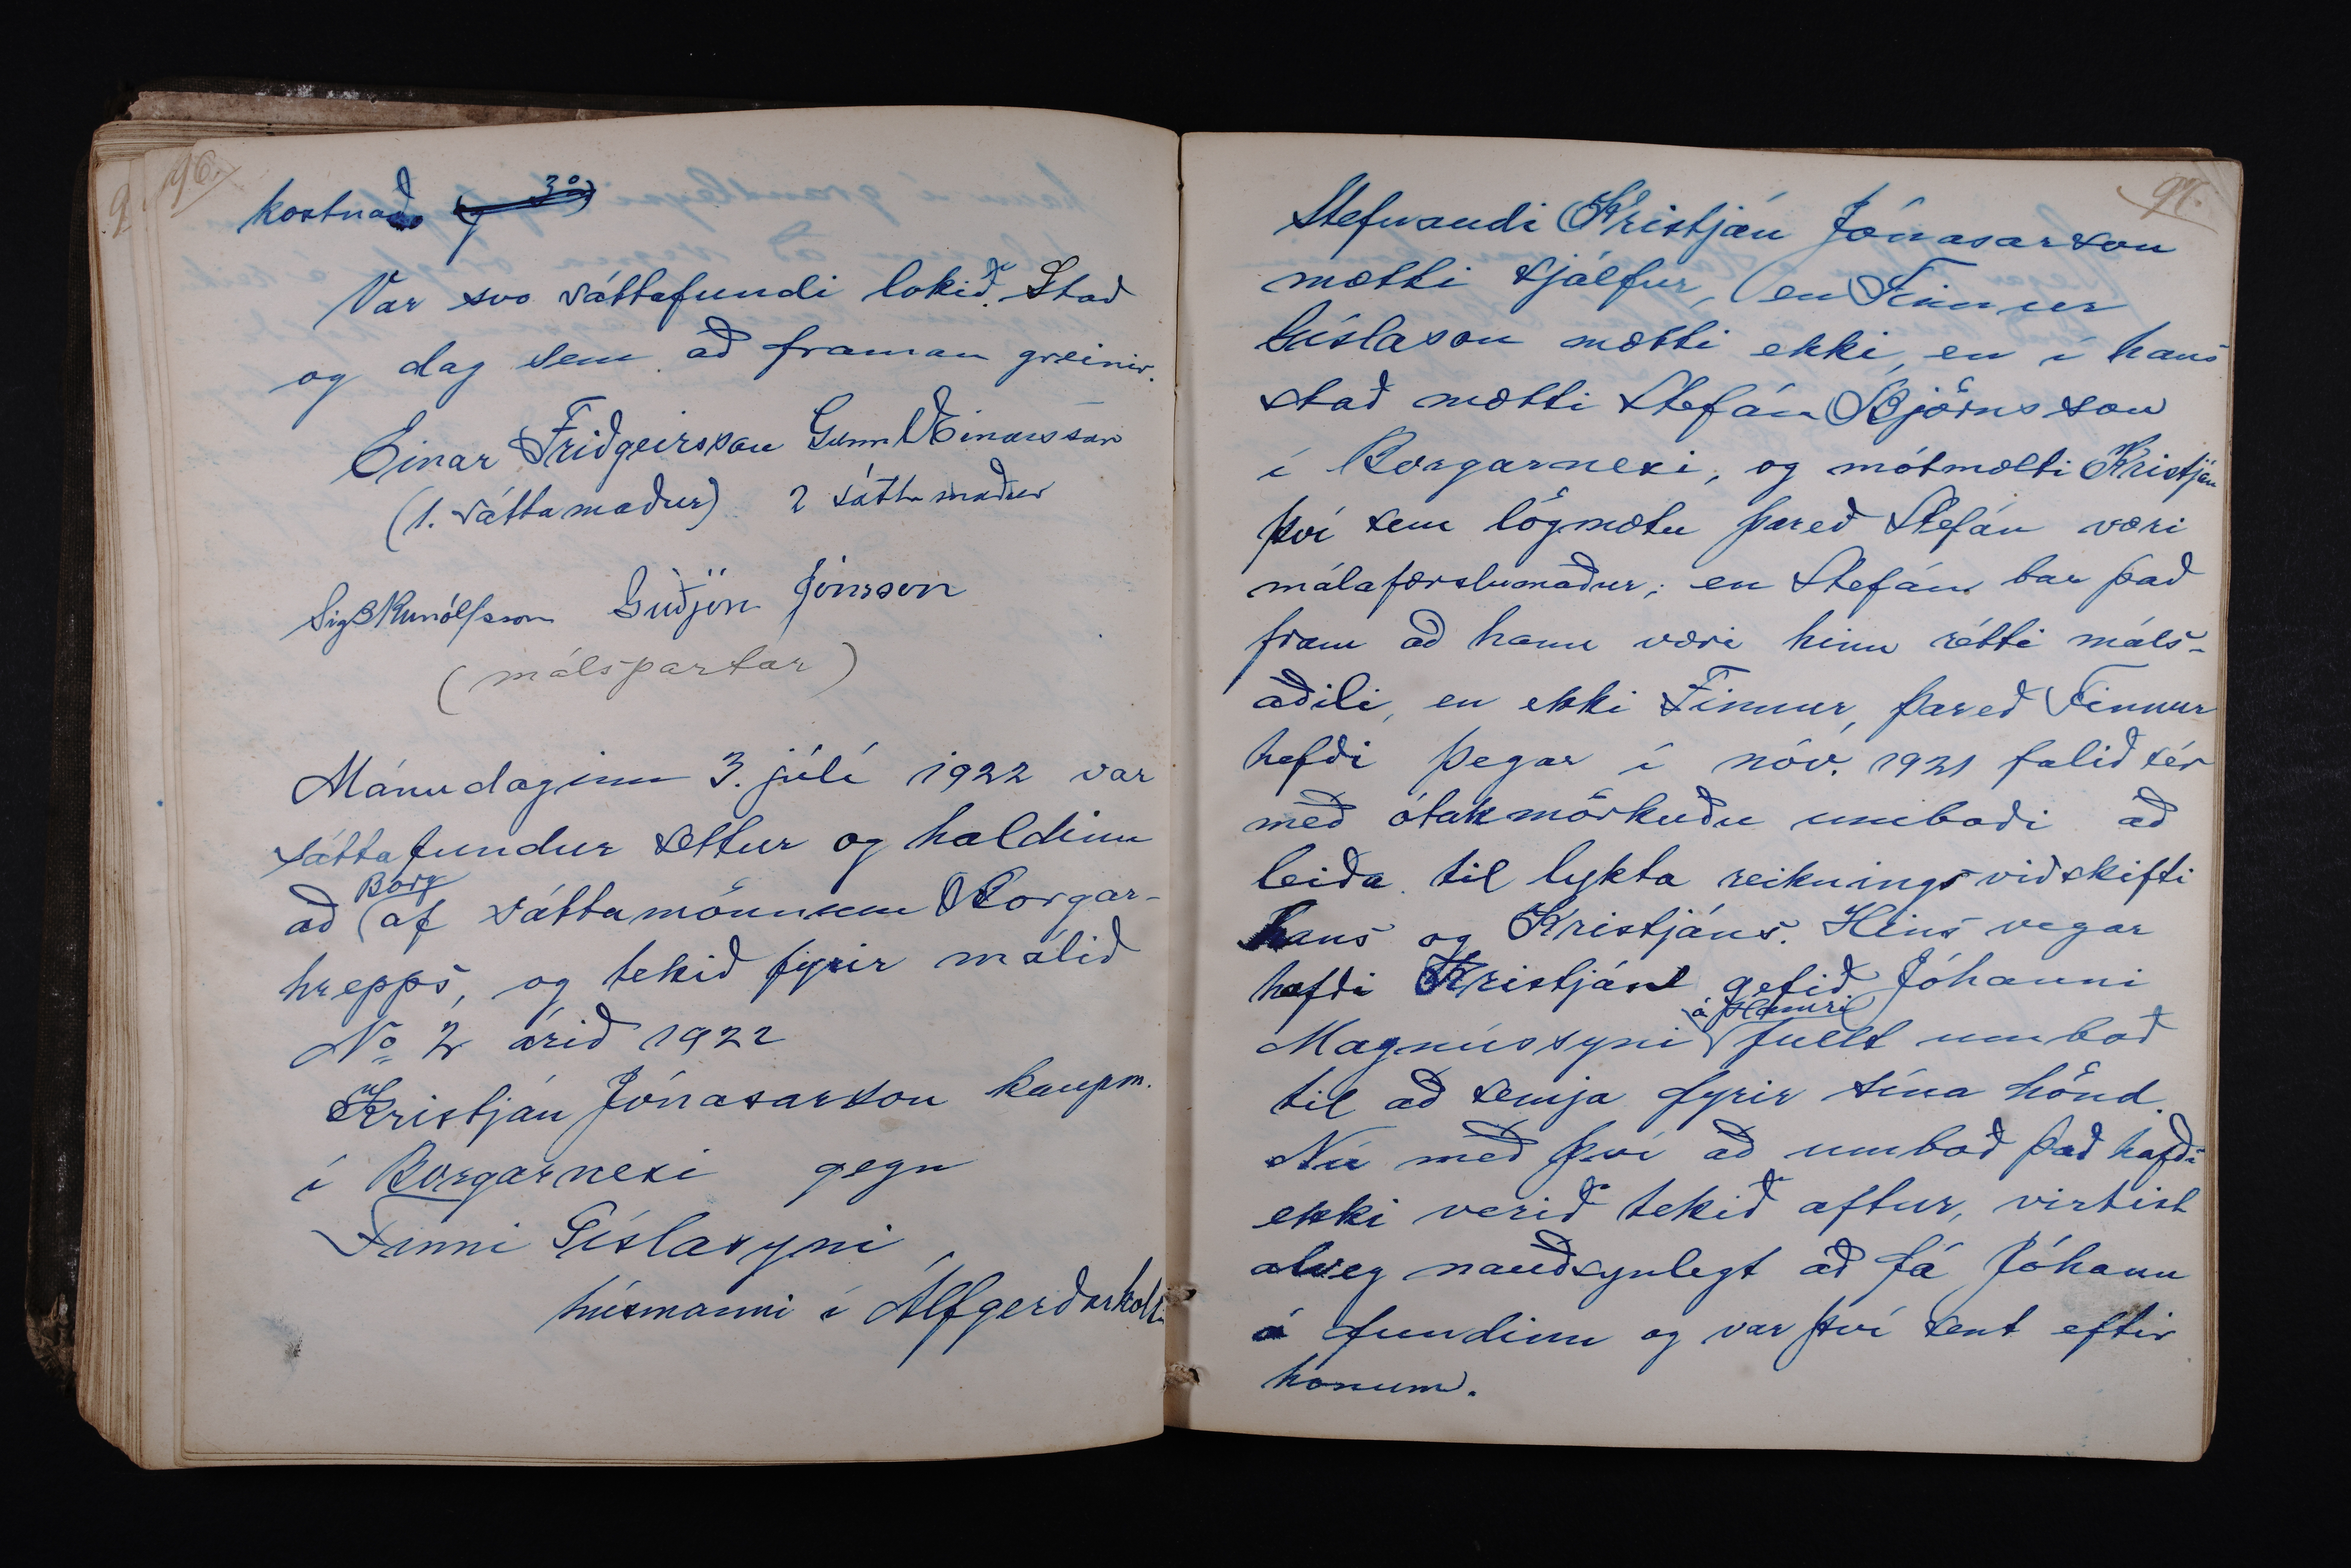 96.
kostnað
Var svo sáttafundi lokið. Stað
og dag sem að framan greinir.
Einar Friðgeirsson Gunnl Einarsson
(1. sáttamaður) 2 sáttamaður
Sig B Runólfsson Guðjón Jónsson
(málspartar)
Mánudaginn 3. júlí 1922 var
sáttafundur settur og haldinn
að Borg af sáttamönnum Borgar-
hrepps, og tekið fyrir málið
No 2 árið 1922
Kristján Jónasarson kaupm.
í Borgarnesi gegn
Finni Gíslasyni
húsmanni í Álfgerðarholti
97.
Stefnandi Kristján Jónasarson
mætti sjálfur, en Finnur
Gíslason mætti ekki, en í hans
stað mætti Stefán Björnsson
í Borgarnesi, og mótmælti Kristján
því sem lögmætu þareð Stefán væri
málafærslumaður; en Stefán bar það
fram að hann væri hinn rétti máls-
aðili, en ekki Finnur, þareð Finnur
hefði þegar í nóv. 1921 falið sér
með ótakmörkuðu umboði að
leiða til lykta reikningsviðskifti
hans og Kristjáns. Hins vegar
hafði Kristján gefið Jóhanni
Magnússyni á Hamri fullt umboð
til að semja fyrir sína hönd.
Nú með því að umboð það hafði
ekki verið tekið aftur, virtist
alveg nauðsynlegt að fá Jóhann
á fundinn og var því sent eftir
honum.